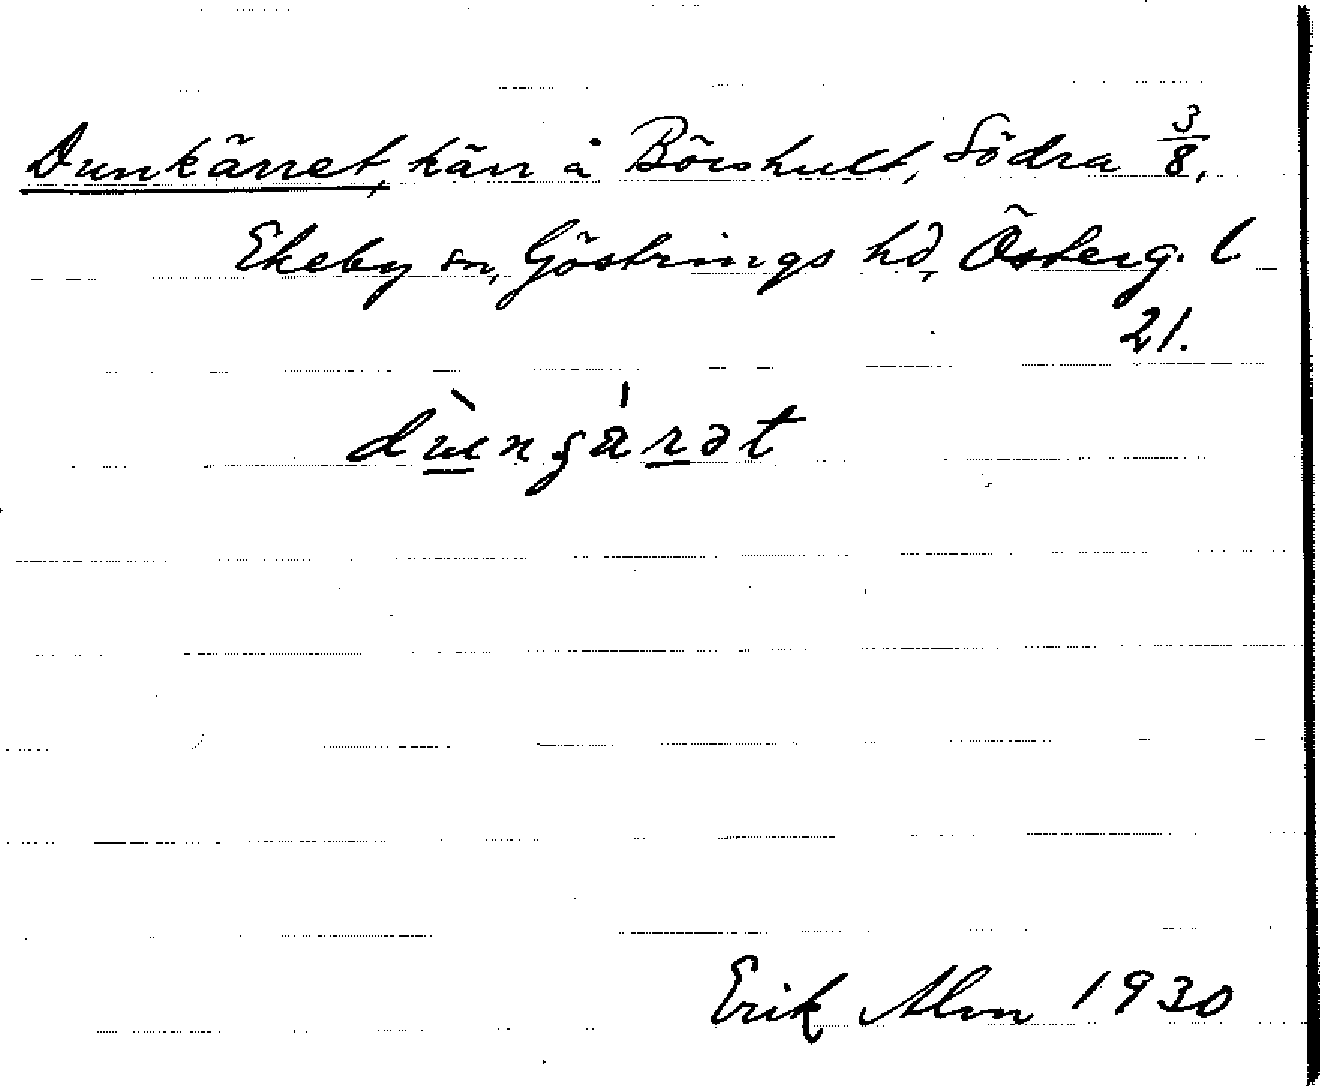 Dunkärret, kärr å Börshult, Södra 3/8,
Ekeby sn, Göstrings hd, Österg. l
21.
Erik Alm 1930